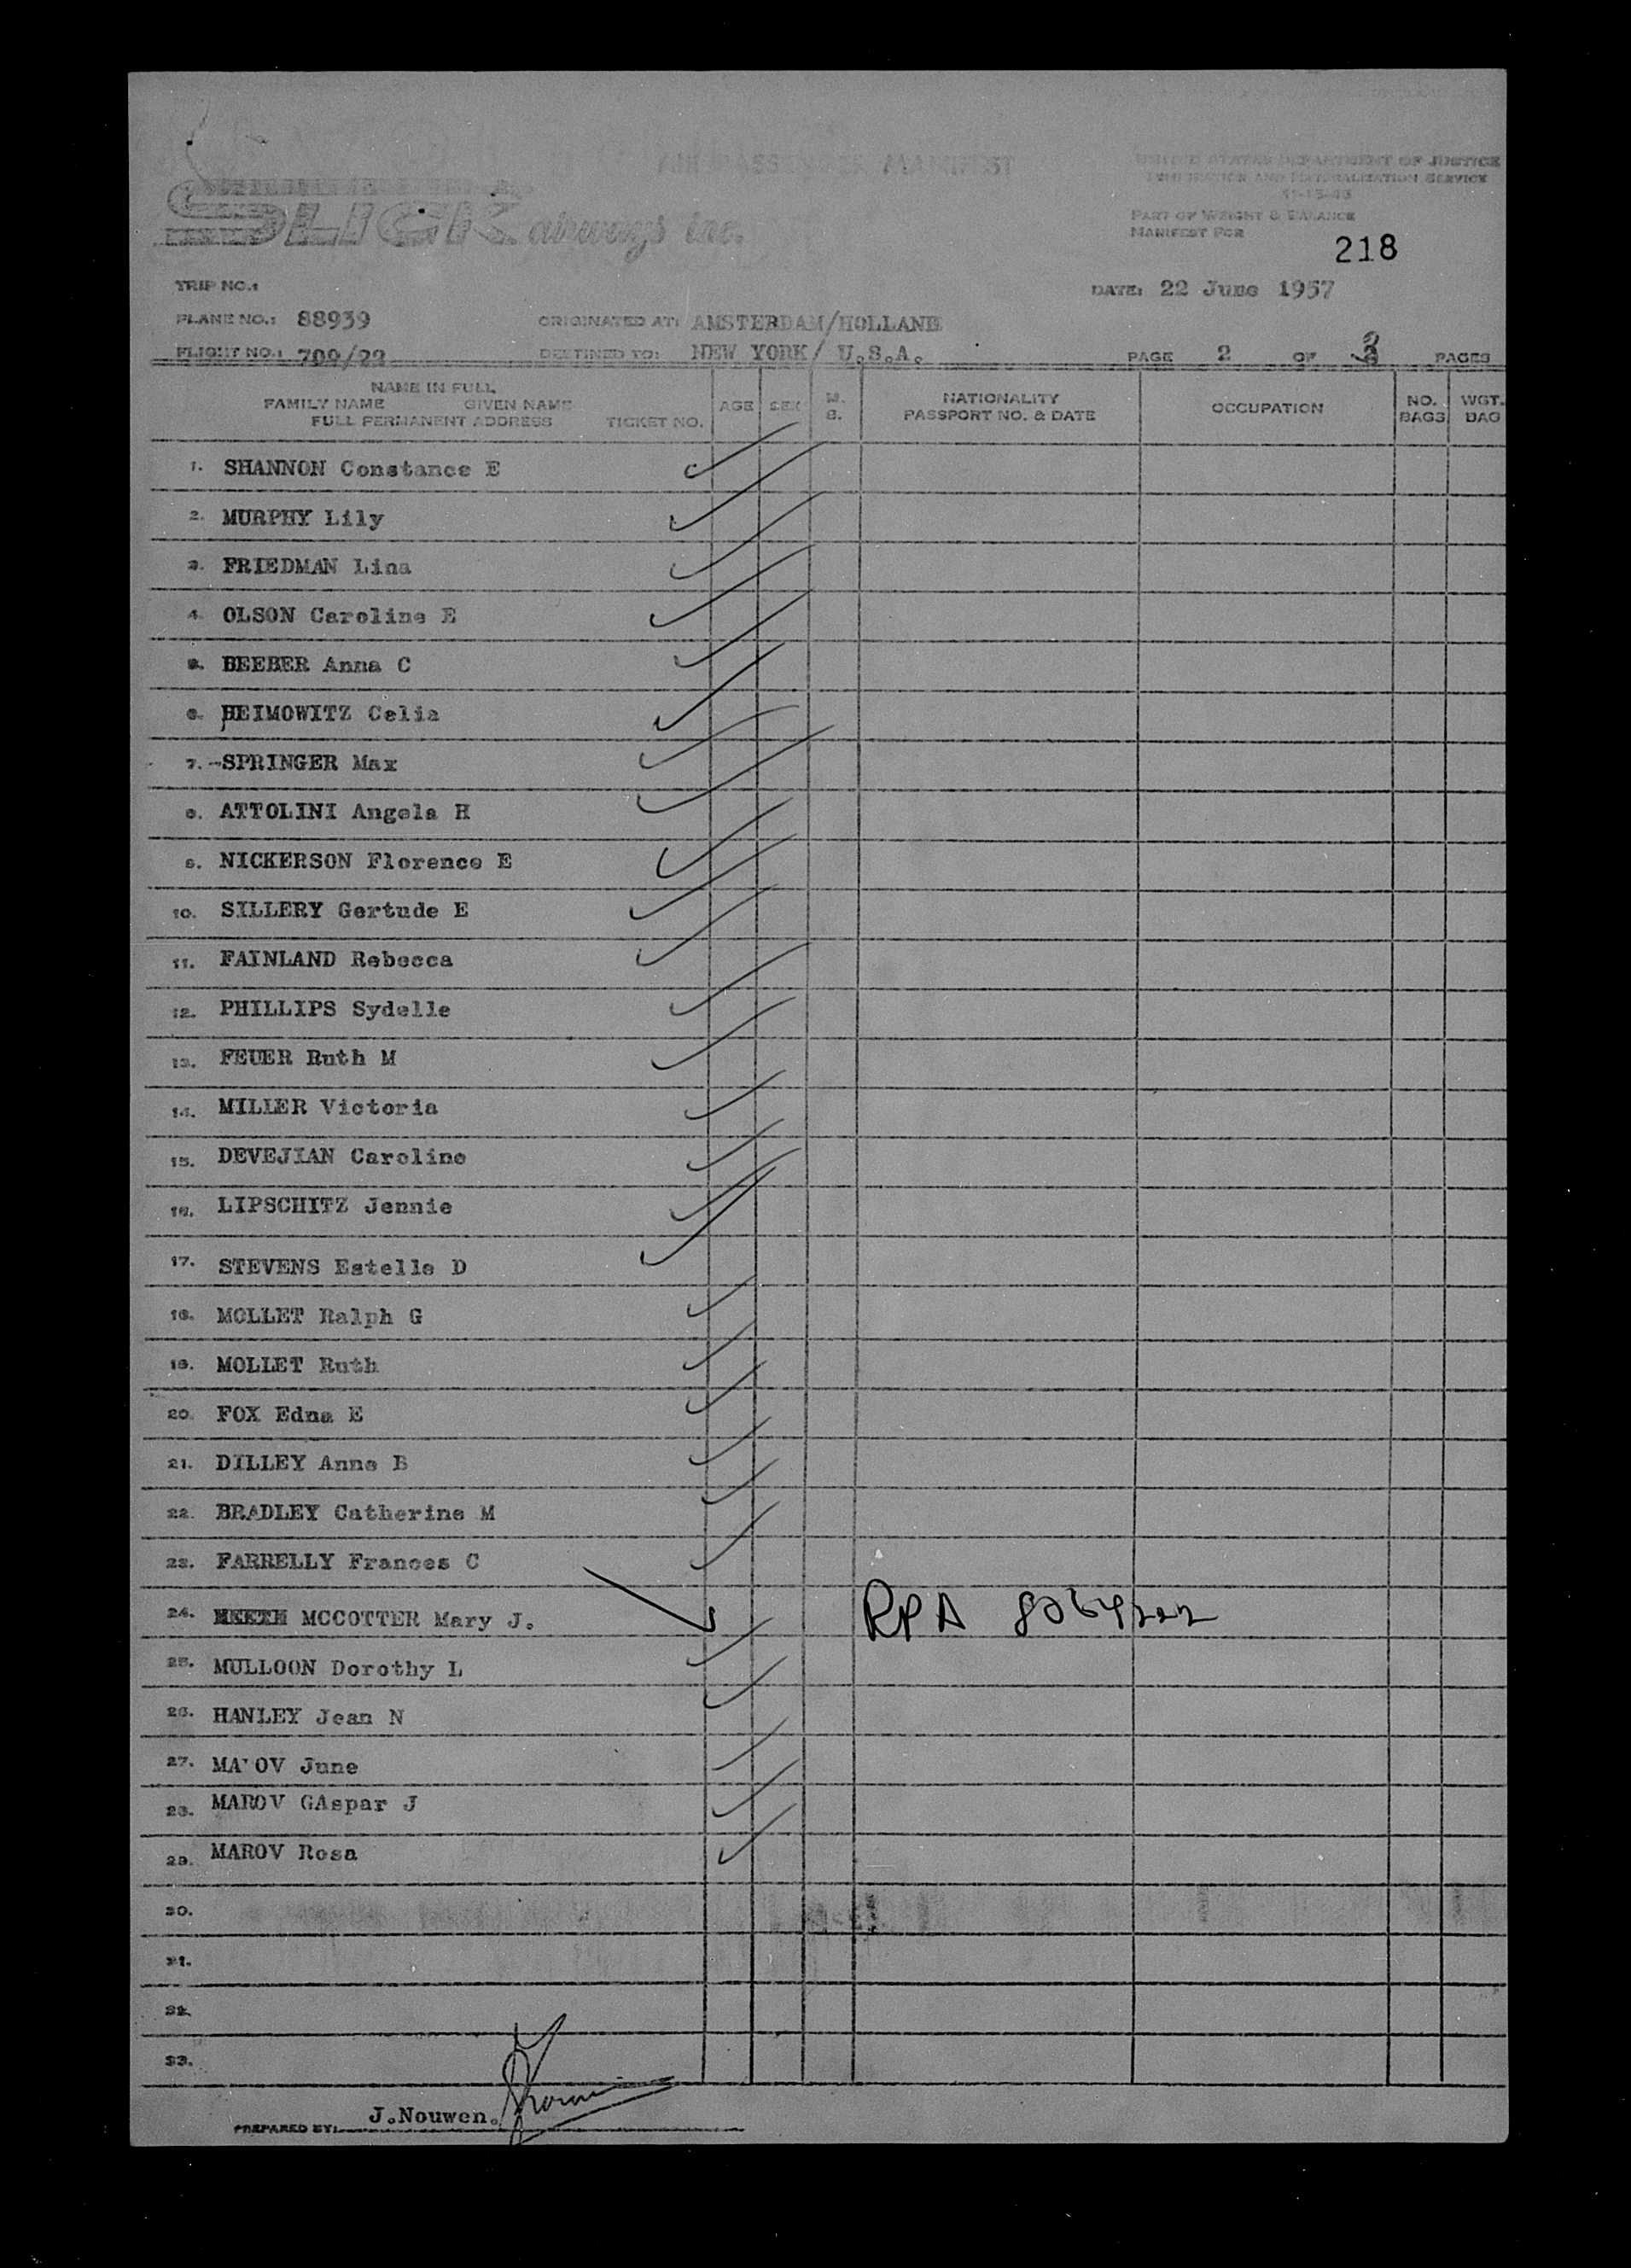 AIR PASSENGER MANIFEST
UNITED STATES DEPARTMENT OF JUSTICE
IMMIGRATION AND NATURALIZATION SERVICE
SLICK airways inc.
PART OF WEIGHT & BALANCE
MANIFEST FOR
218
TRIP NO.:
DATE: 22 June 1957
PLANE NO.: 88939 ORIGINATED AT: AMSTERDAM/HOLLAND
FLIGHT NO.: 709/22 DESTINED TO: NEW YORK/ U.S.A. PAGE 2 OF 3 PAGES
NAME IN FULL
FAMILY NAME GIVEN NAME
FULL PERMANENT ADDRESS TICKET NO. AGE SEX M. S. NATIONALITY PASSPORT NO. & DATE OCCUPATION NO. BAGS WGT. BAG
1. SHANNON Constance E
2. MURPHY Lily
3. FRIEDMAN Lina
4. OLSON Caroline E
5. BEEBER Anna C
6. HEIMOWITZ Celia
7. -SPRINGER Max
8. ATTOLINI Angela H
9. NICKERSON Florence E
10. SILLERY Gertude E
11. FAINLAND Rebecca
12. PHILLIPS Sydelle
13. FEUER Ruth M
14. MILLER Victoria
15. DEVEJIAN Caroline
16. LIPSCHITZ Jennie
17. STEVENS Estelle D
18. MOLLET Ralph G
19. MOLLET Ruth
20. FOX Edna E
21. DILLEY Anne B
22. BRADLEY Catherine M
23. FARRELLY Frances C
24. MCCOTTER Mary J. RPA 8064222
25. MULLOON Dorothy L
26. HANLEY Jean N
27. MA'OV June
28. MAROV GAspar J
29. MAROV Rosa
30.
31.
32.
33.
PREPARED BY: J.Nouwen.